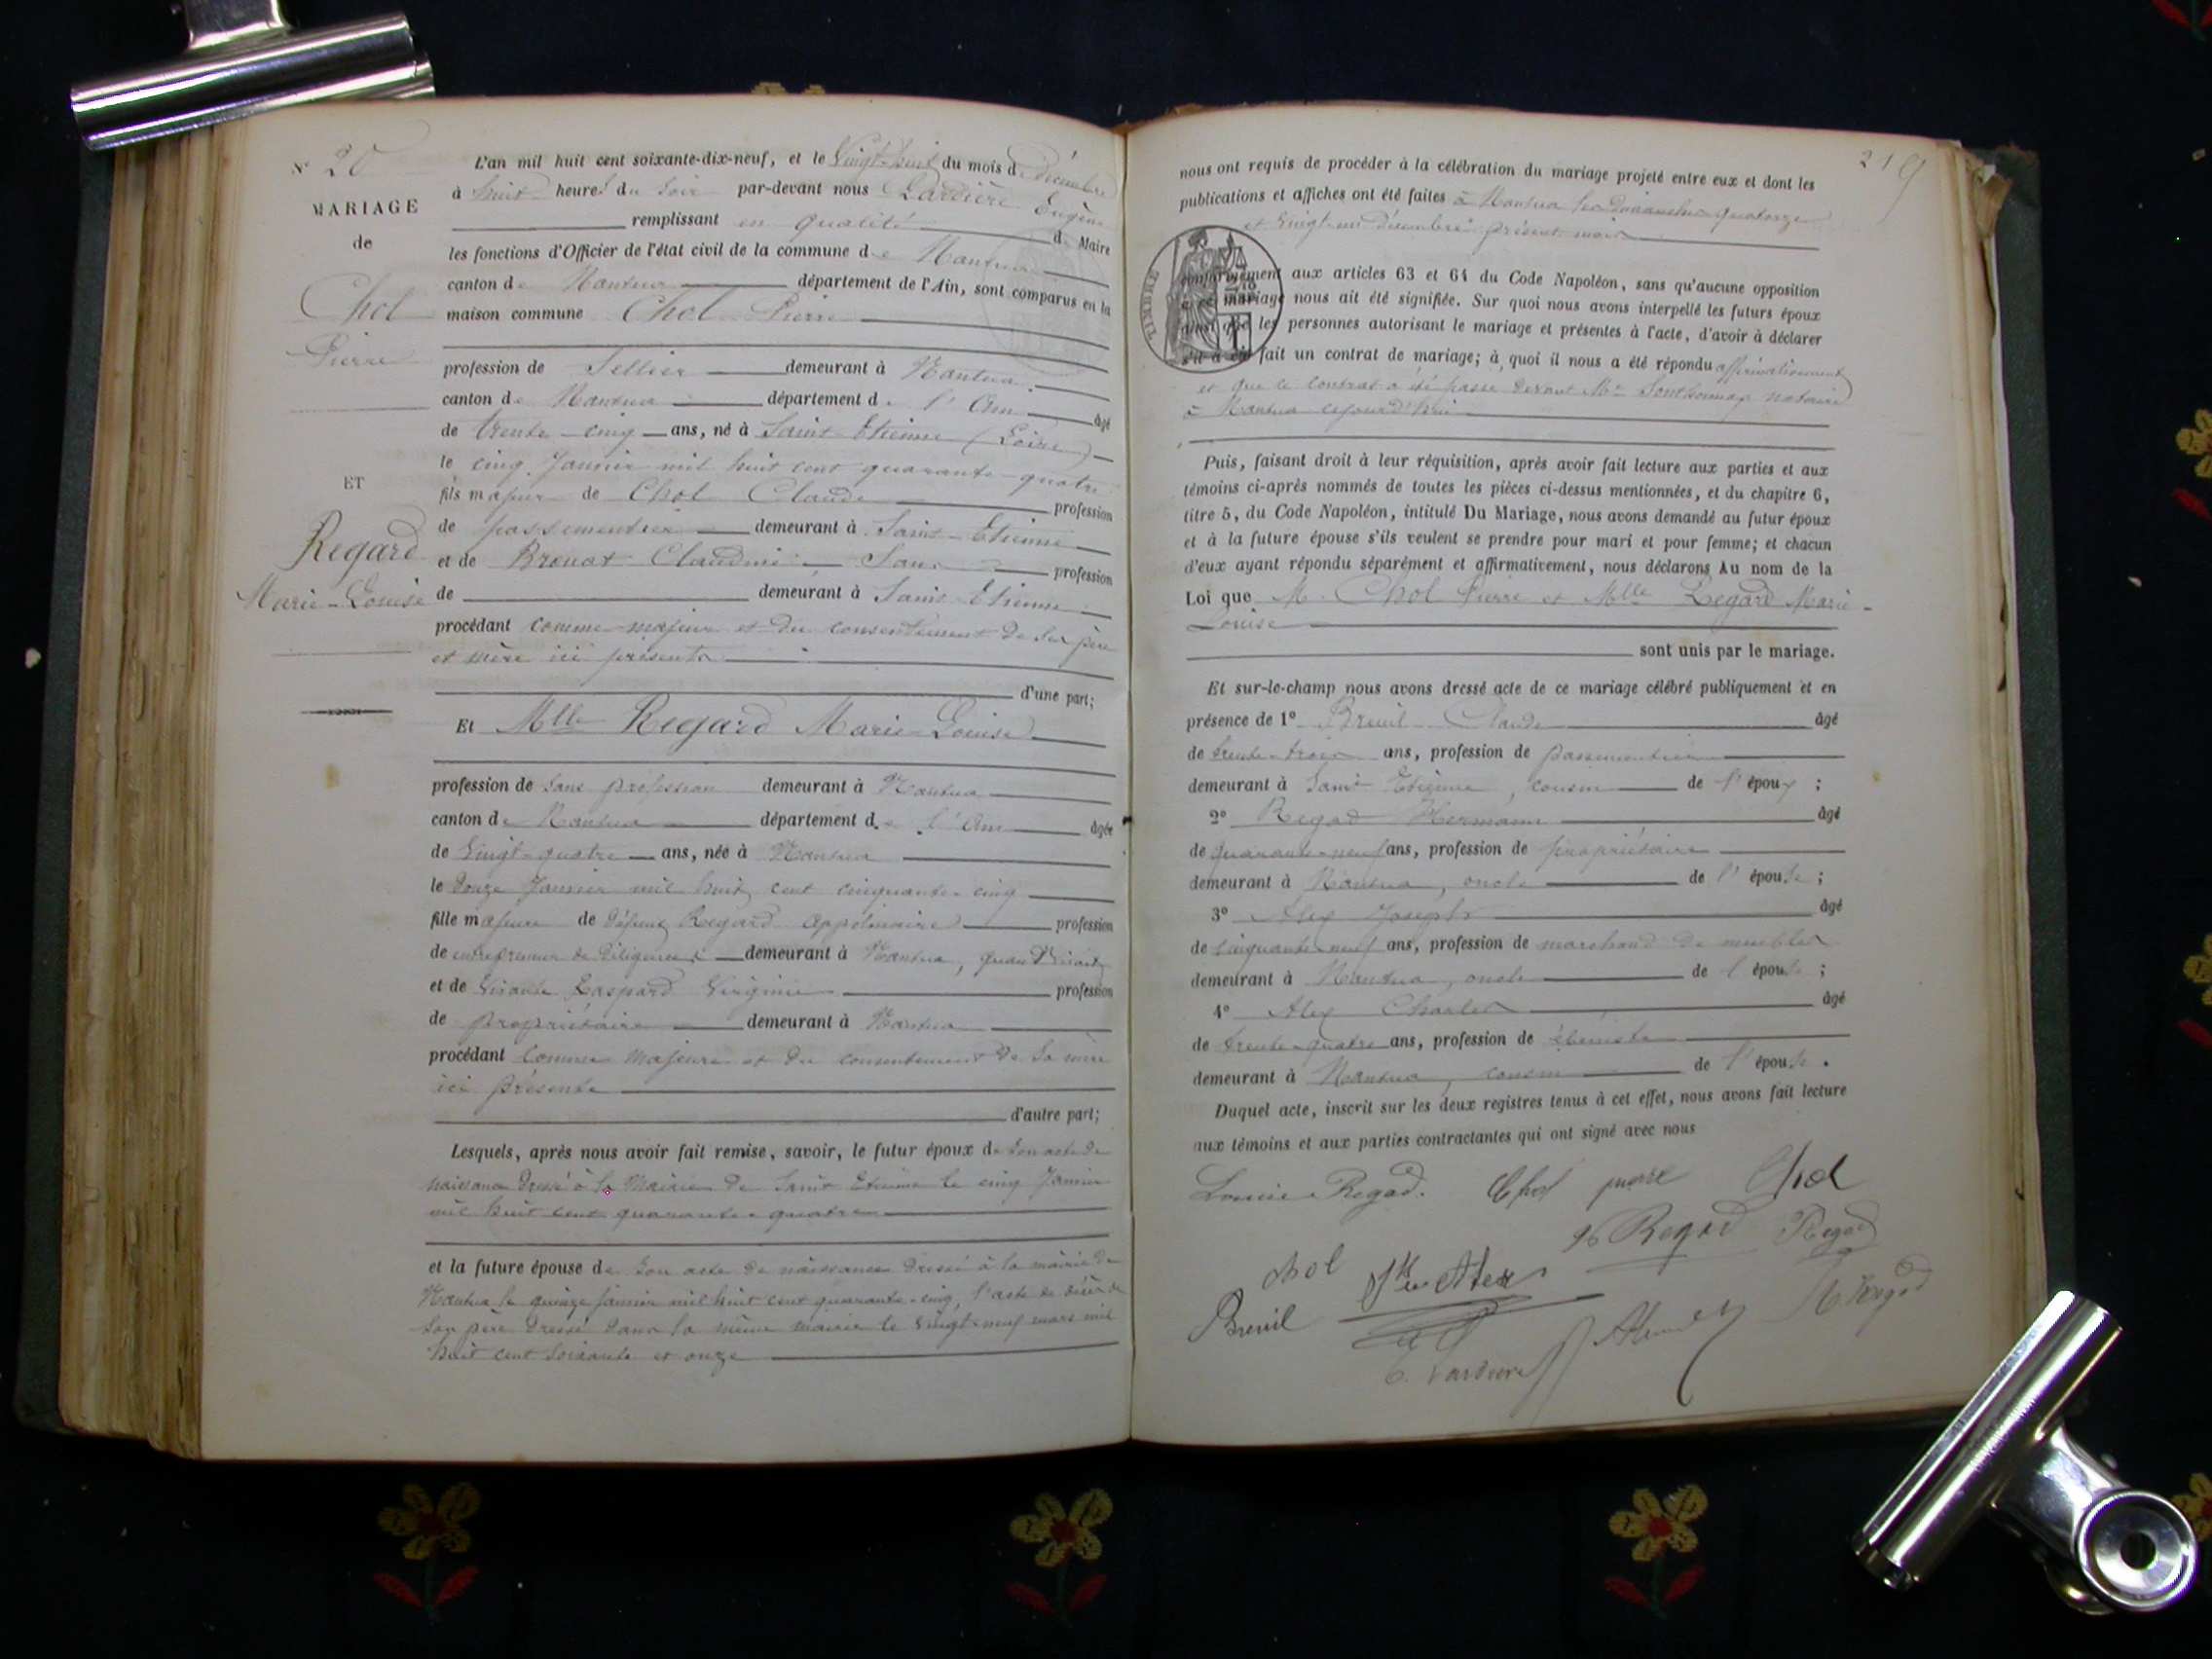 N° 20
MARIAGE
de
Chol
Pierre
ET
Regard
Marie-Louise
L'an mil huit cent soixante-dix-neuf, et le Vingt-huit du mois de décembre
à huit heures du Soir par-devant nous Lardière Eugène
remplissant en qualité de Maire
les fonctions d'Officier de l'état civil de la commune de Nantua
canton de Nantua département de l'Ain, sont comparus en la
maison commune Chol Pierre
profession de Sellier demeurant à Nantua
canton de Nantua département de l'Ain âgé
de trente-cinq ans, né à Saint-Etienne (Loire)
le cinq Janvier mil huit cent quarante-quatre
fils majeur de Chol Claude profession
de passementier demeurant à Saint-Etienne
et de Brouat Claudine Sans profession
de demeurant à Saint-Etienne
procédant comme majeur et du consentement de ses père
et mère ici présents
d'une part;
Et Mlle Regard Marie-Louise
profession de Sans profession demeurant à Nantua
canton de Nantua département de l'Ain âgée
de Vingt-quatre ans, née à Nantua
le douze Janvier mil huit cent cinquante-cinq
fille majeure de défunt Regard Appolinaire profession
de entrepreneur de diligences demeurant à Nantua, quand vivait
et de vivante Gaspard Virginie profession
de propriétaire demeurant à Nantua
procédant comme majeure et du consentement de sa mère
ici présente
d'autre part;
Lesquels, après nous avoir fait remise, savoir, le futur époux de son acte de
naissance dressé à la Mairie de Saint Etienne le cinq Janvier
mil huit cent quarante-quatre
et la future épouse de son acte de naissance dressé à la mairie de
Nantua le quinze janvier mil huit cent quarante-cinq, l'acte de décès de
son père dressé dans la même mairie le vingt-neuf mars mil
huit cent soixante et onze
219
nous ont requis de procéder à la célébration du mariage projeté entre eux et dont les
publications et affiches ont été faites à Nantua les dimanches quatorze
et vingt-un Décembre présent mois
TIMBRE
conformément aux articles 63 et 64 du Code Napoléon, sans qu'aucune opposition
à ce mariage nous ait été signifiée. Sur quoi nous avons interpellé les futurs époux
ainsi que les personnes autorisant le mariage et présentes à l'acte, d'avoir à déclarer
s'il a été fait un contrat de mariage; à quoi il nous a été répondu affirmativement
et que le contrat a été passé devant Me Sonthonnax notaire
à Nantua cejourd'hui
Puis, faisant droit à leur réquisition, après avoir fait lecture aux parties et aux
témoins ci-après nommés de toutes les pièces ci-dessus mentionnées, et du chapitre 6,
titre 5, du Code Napoléon, intitulé Du Mariage, nous avons demandé au futur époux
et à la future épouse s'ils veulent se prendre pour mari et pour femme; et chacun
d'eux ayant répondu séparément et affirmativement, nous déclarons Au nom de la
Loi que M. Chol Pierre et Mlle Regard Marie-
Louise
sont unis par le mariage.
Et sur-le-champ nous avons dressé acte de ce mariage célébré publiquement et en
présence de 1° Breuil Claude âgé
de trente-trois ans, profession de passementier
demeurant à Saint Etienne, cousin de l'époux ;
2° Regad Hermann âgé
de quarante-neuf ans, profession de propriétaire
demeurant à Nantua, oncle de l'épouse ;
3° Alex Joseph âgé
de cinquante-neuf ans, profession de marchand de meubles
demeurant à Nantua, oncle de l'épouse ;
4° Alex Charles âgé
de trente-quatre ans, profession de ébéniste
demeurant à Nantua, cousin de l'épouse.
Duquel acte, inscrit sur les deux registres tenus à cet effet, nous avons fait lecture
aux témoins et aux parties contractantes qui ont signé avec nous
Louise Regad. Chol Chol
Regad Regad
Chol Alex
Breuil
E. Lardière H. Regad